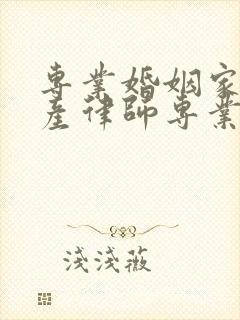 專業婚姻家
產律師專業
淺淺薇